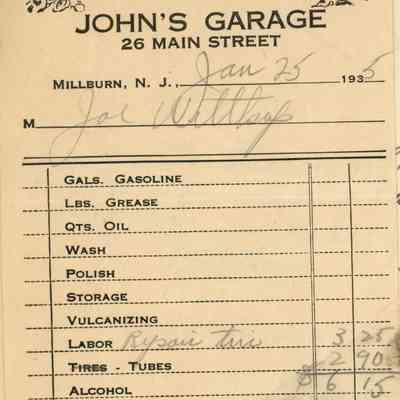 JOHN'S GARAGE
26 MAIN STREET
MILLBURN, N. J., Jan 25 1935
M Joe
GALS. GASOLINE
LBS. GREASE
QTS. OIL
WASH
POLISH
STORAGE
VULCANIZING
LABOR Repair tire 3 25
TIRES - TUBES 2 90
ALCOHOL $ 6 15